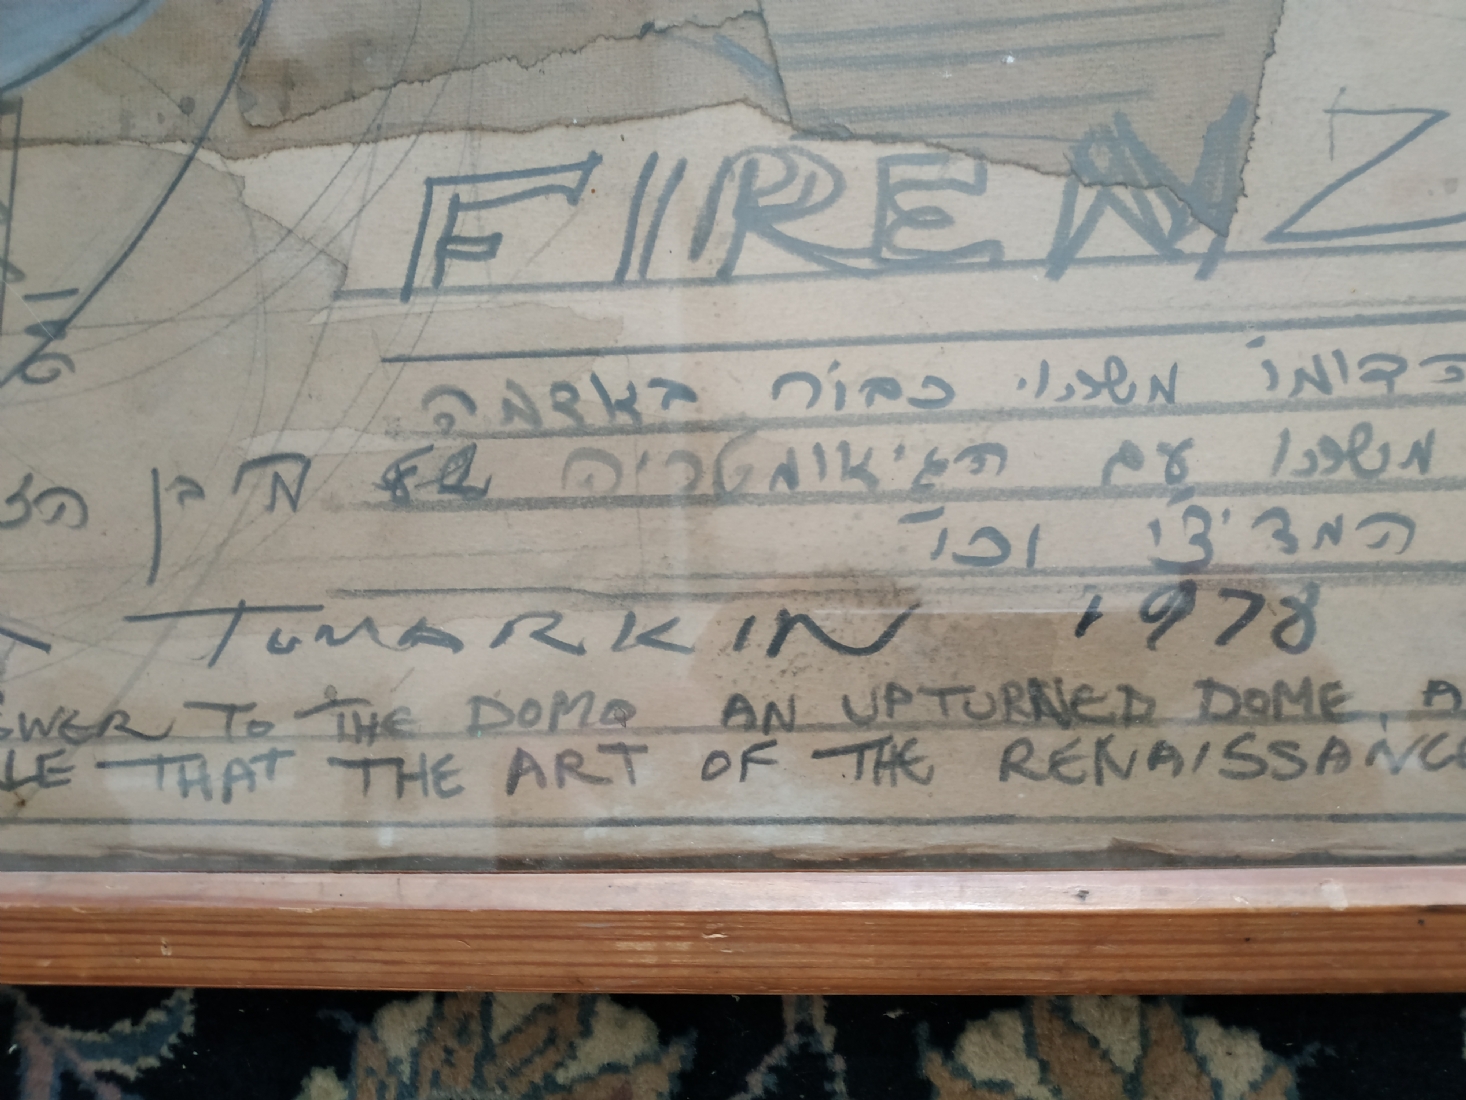 FIRENZ
הדומו משולש כבול באדמה
משולש עם הגיאומטריה של
בן הז
המדיצ'י וכו'
TUMARKIN 1978
SWER TO THE DOMO AN UPTURNED DOME, A
LE THAT THE ART OF THE RENAISSANCE